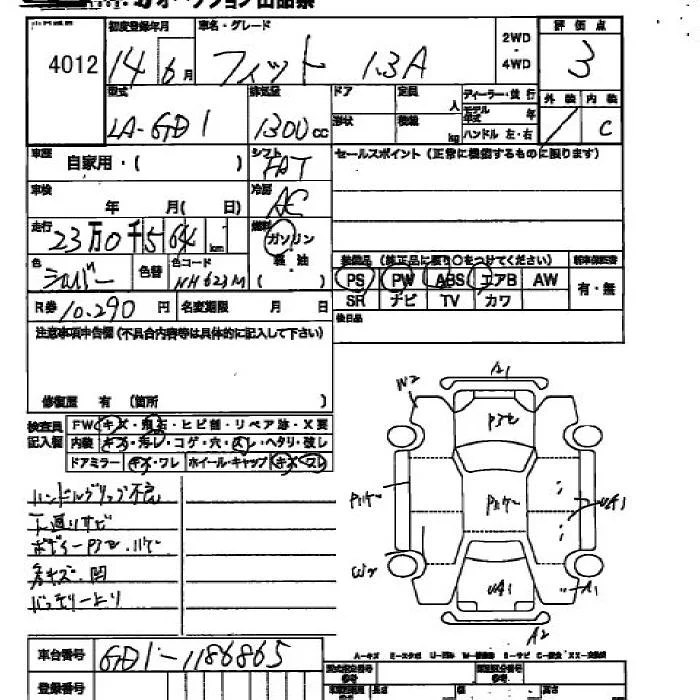 4012
初度登録年月
14年 6月
車名・グレード
フィット 1.3A
2WD
・
4WD
評価点
3
外装 内装
/ C
型式
LA-GD1
排気量
1300cc
ドア
定員
人
形状
積載
kg
ディーラー・並行
モデル年式 年
ハンドル 左・右
車歴
自家用・( )
シフト
FAT
セールスポイント (正常に機能するものに限ります)
車検
年 月( 日)
冷房
AC
走行
23万0千564km
燃料
ガソリン
軽油
( )
色
シルバー
色替
色コード
NH623M
装備品 (純正品に限り○をつけてください)
新車保証書
PS PW ABS エアB AW
SR ナビ TV カワ
有・無
R券 10,290円
名変期限 月 日
後日品
注意事項申告欄(不具合内容等は具体的に記入して下さい)
修復歴 有 (箇所 )
検査員
記入欄
FW キズ・飛石・ヒビ割・リペア跡・X要
内装 キズ・汚レ・コゲ・穴・スレ・ヘタリ・破レ
ドアミラー キズ・ワレ ホイール・キャップ キズ・ワレ
ハンドルグリップ不良
下廻りサビ
ボディー P3セ.ハゲ
小キズ.凹
バッテリー上り
A1
W2
P3セ
Pハゲ
Pハゲ
UA1
UA1
A1
A2
車台番号
GD1-1186865
登録番号
A-キズ E-エクボ U-凹み W-補修跡 S-サビ C-腐食 XX-交換済
型式指定番号
参考
類別区分番号
参考
長さ